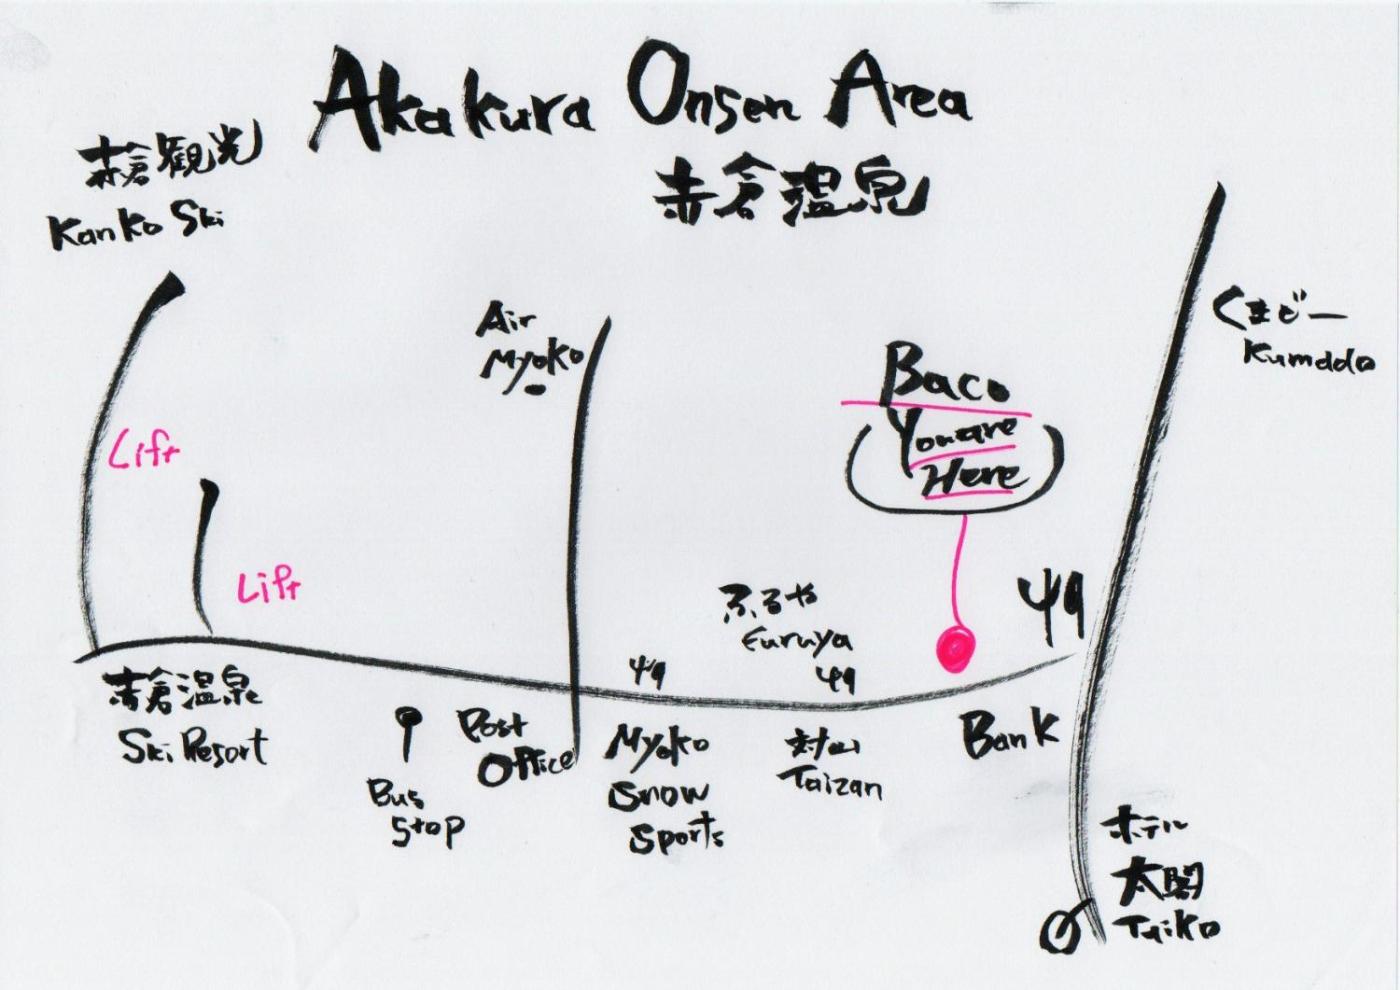 Akakura Onsen Area
赤倉温泉
赤倉観光
Kanko Ski
Air
Myoko
くまどー
Kumado
Baco
You are
Here
Lift
Lift
ふるや
Furuya
赤倉温泉
Ski Resort
Bus
Stop
Post
Office
Myoko
Snow
Sports
対山
Taizan
Bank
ホテル
太閤
Taiko